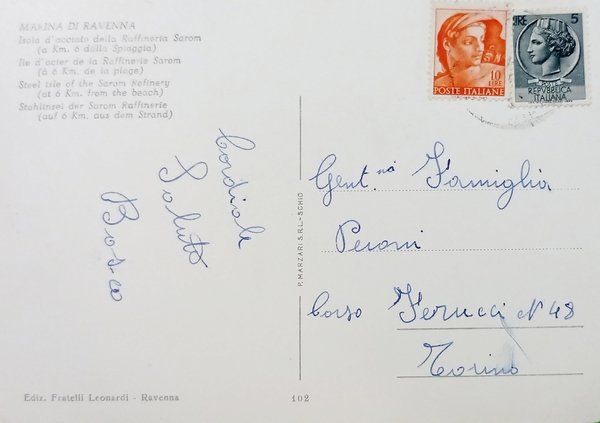 MARINA DI RAVENNA
Isola d'acciaio della Raffineria Sarom
(a Km. 6 dalla Spiaggia)
Ile d'acier de la Raffinerie Sarom
(à 6 Km. de la plage)
Steel isle of the Sarom Refinery
(at 6 Km. from the beach)
Stahlinsel der Sarom Raffinerie
(auf 6 Km. aus dem Strand)
10
LIRE
POSTE ITALIANE
LIRE 5
POSTE
REPVBBLICA
ITALIANA
Cordiale
Saluto
Bosco
P. MARZARI S.R.L. - SCHIO
Gent.ma Famiglia
Peroni
Corso Ferucci N° 48
Torino
Ediz. Fratelli Leonardi - Ravenna
102